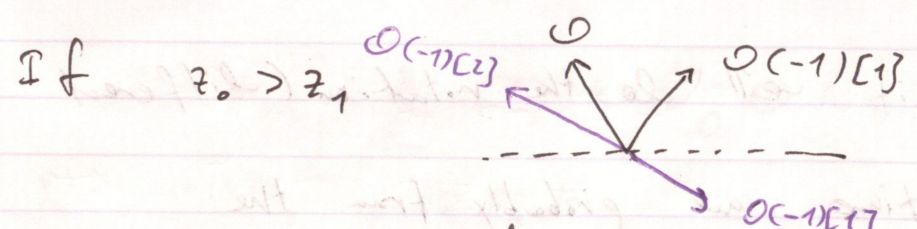 If z₀ > z₁ O(-1)[2] O O(-1)[1]
O(-1)[1]